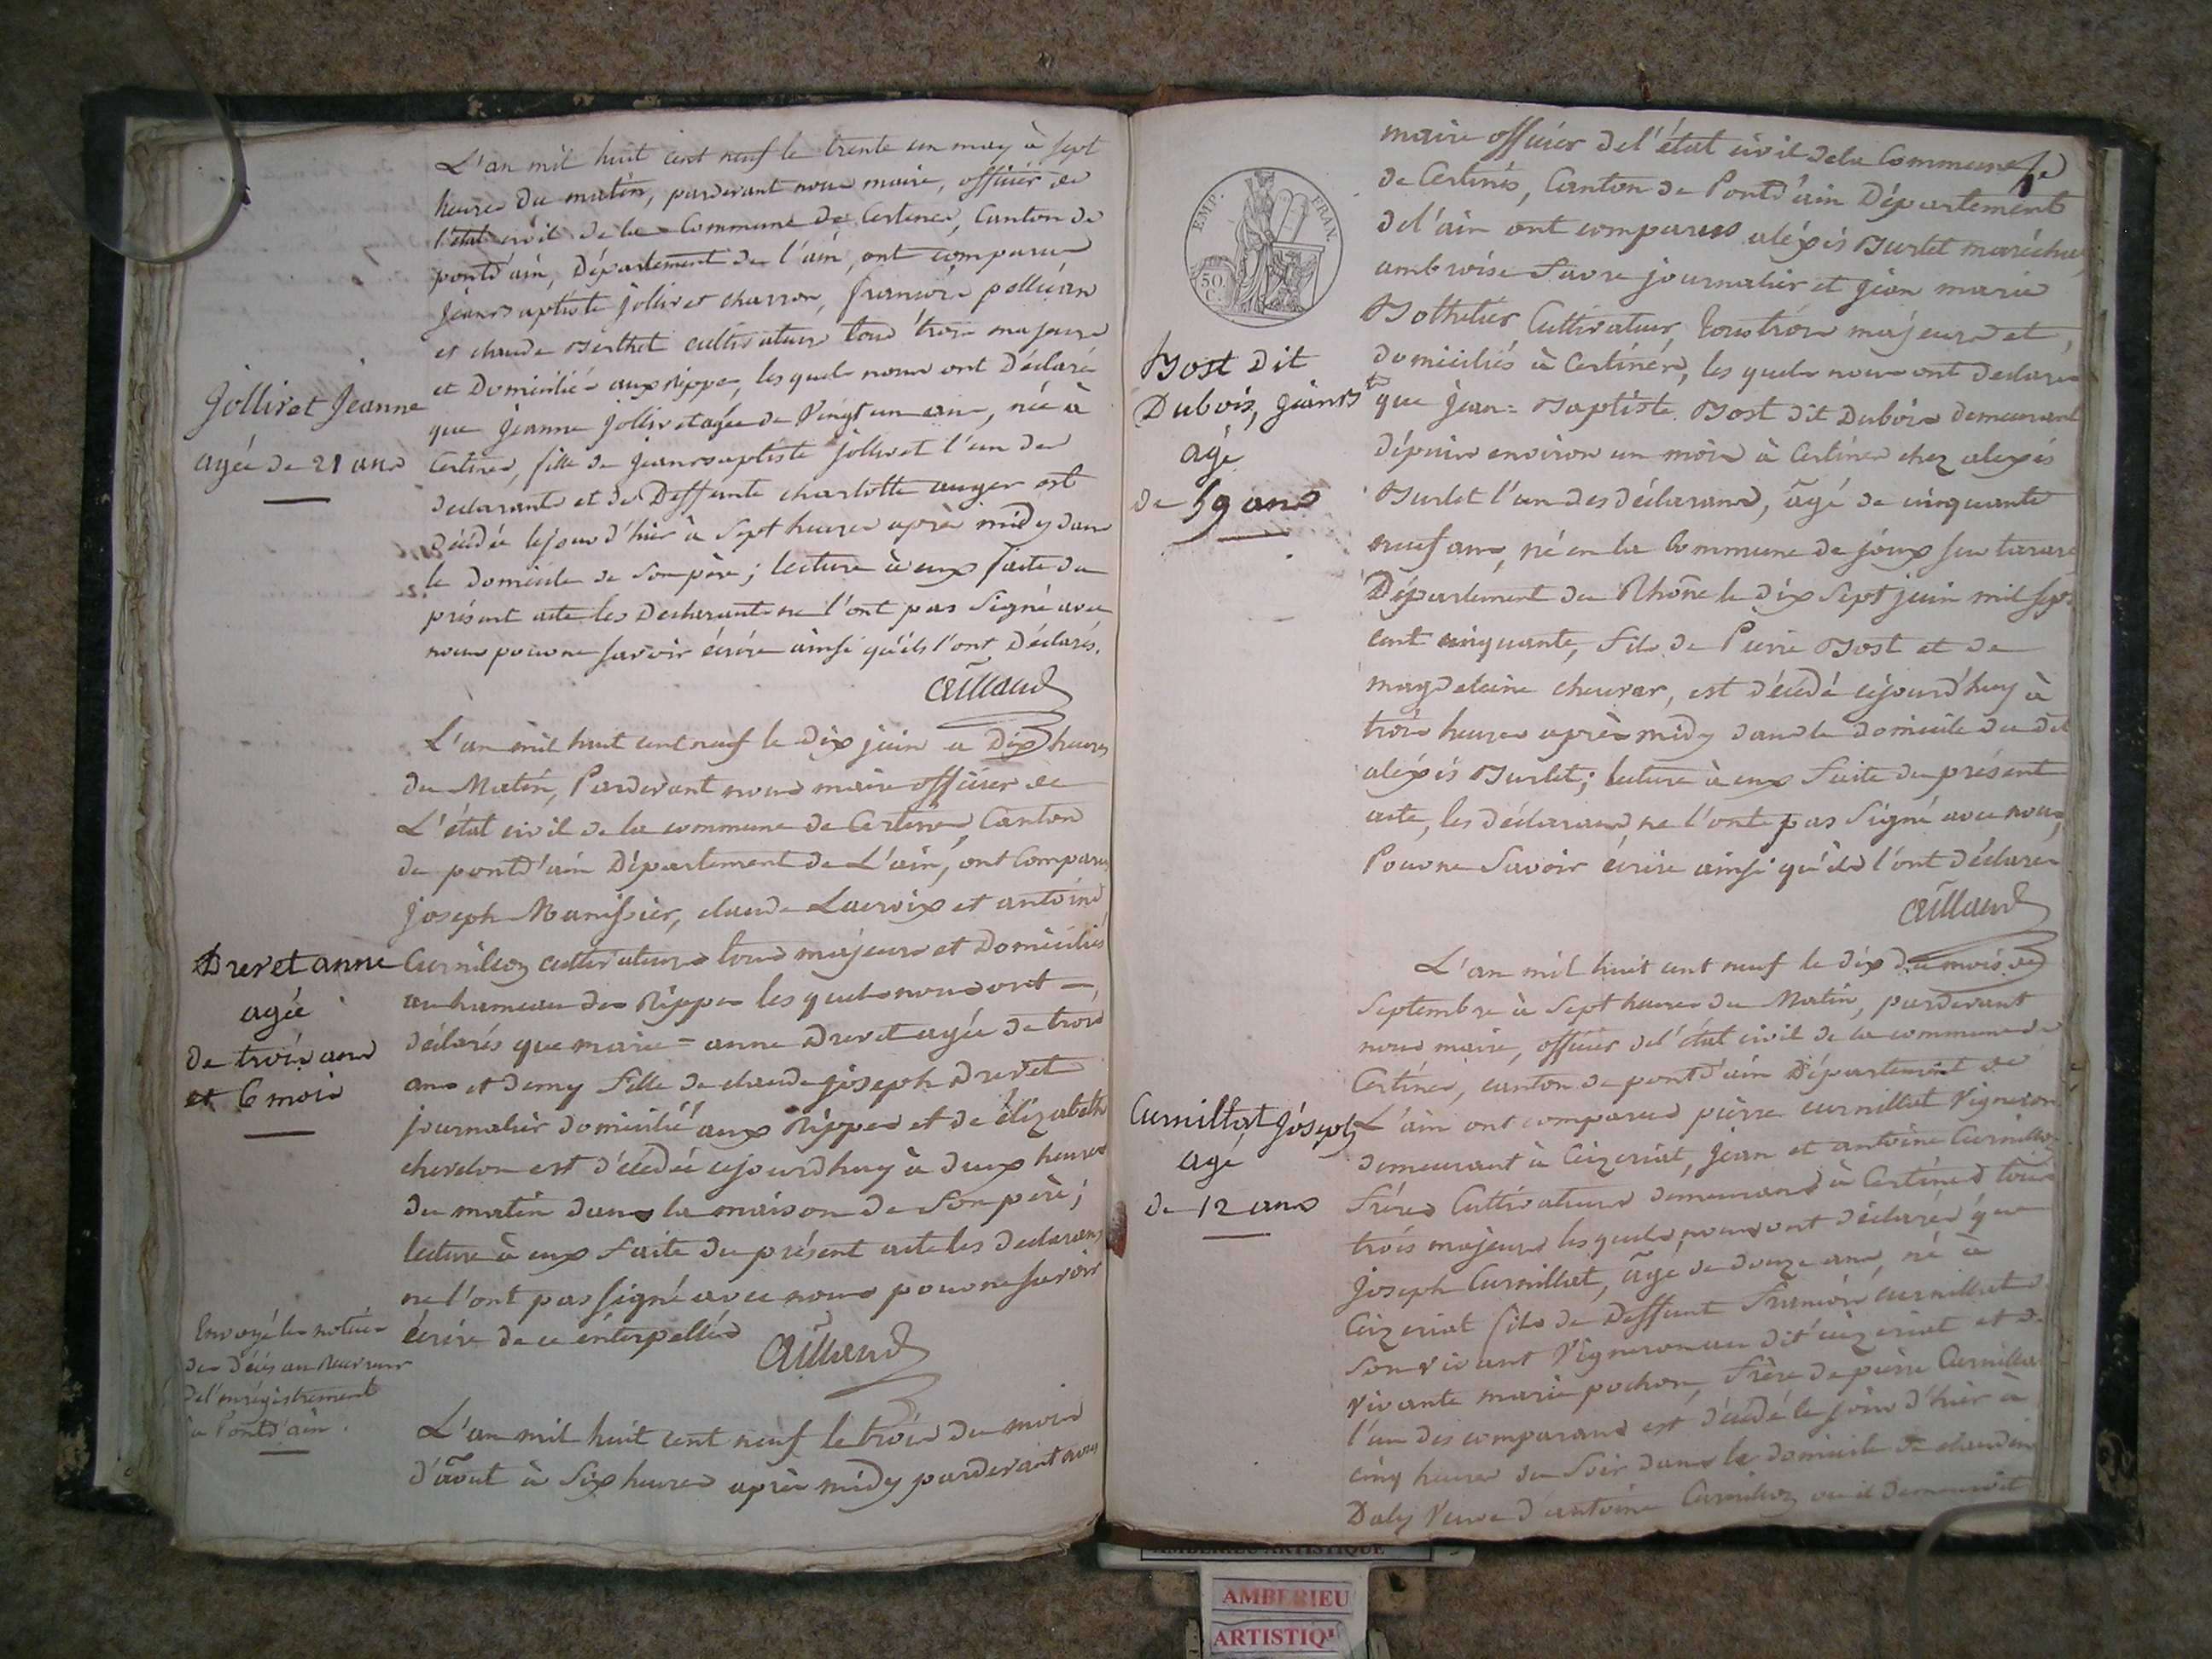 L'an mil huit cent neuf le trente un may à sept
heures du matin, pardevant nous maire, officier de
l'état civil de la Commune de Certines, Canton de
pontd'ain, Département de l'ain, ont comparus
jeanBaptiste jollivet charron, françois pellican
et claude Berthet cultivateurs tous trois majeurs
et Domiciliés aux Rippes, lesquels nous ont Déclaré
Jollivet Jeanne
agée de 21 ans
que jeanne jollivet agée de Vingt un ans, née à
Certines, fille de jeanBaptiste jollivet l'un des
declarants et de Deffunte charlotte auger est
décédée lejour d'hier à Sept heures après midy dans
le domicile de Son père; lecture à eux faite du
présent acte les Declarants ne l'ont pas Signé avec
nous pour ne savoir écrire ainsi qu'ils l'ont Déclarés.
L'an mil huit cent neuf le Dix juin a Dix heures
du Matin, Pardevant nous maire officier de
L'état civil de la commune de Certines, Canton
de pontd'ain Département de L'ain, ont Comparus
joseph Manissier, claude Lacroix et antoine
Drevet anne
agée
de trois ans
et 6 mois
cultivateurs tous majeurs et Domiciliés
au hameau des Rippes les quels nous ont
déclarés que marie = anne Drevet agée de trois
ans et demy fille de claude joseph Drevet
journalier domicilié aux Rippes et de élizabeth
est décédée cejourdhuy à deux heures
du matin dans la maison de Son père;
lecture à eux faite du présent acte les declarans
ne l'ont pas signé avec nous pour ne savoir
écrire de ce interpellés
Envoyé les notices
des Décès au Receveur
del'enrégistrement
à Pontd'ain.
L'an mil huit cent neuf le trois du mois
d'août à Six heures après midy pardevant nous
EMP. FRAN.
50 C.
maire officier del'état civil dela Commune
de Certines, Canton de Pontd'ain Département
del'ain ont comparus aléxis Burlet maréchal,
ambroise favre journalier et jean marie
Cultivateur, tous trois majeurs et
domiciliés à Certines, les quels nous ont declarés
Bost Dit
Dubois, jean Bte
agé
de 59 ans
que jean = Baptiste Bost dit Dubois demeurant
dépuis environ un mois à Certines chez alexis
Burlet l'un des déclarans, âgé de cinquante
neuf ans, né en la Commune de joux sur tarare
Département du Rhône le dix Sept juin mil sept
cent cinquante, fils de Pierre Bost et de
magdelaine, est décédé cejourd'huy à
trois heures après midy dans le domicile du dit
aléxis Burlet; lecture à eux faite du présent
acte, les déclarans ne l'ont pas Signé avec nous,
Pour ne Savoir écrire ainsi qu'ils l'ont déclarés
L'an mil huit cent neuf le dix du mois de
Septembre à Sept heures du Matin, pardevant
nous maire, officier del'état civil de la commune de
Certines, canton de pontd'ain Département de
Curnillat joseph
agé
de 12 ans
L'ain ont comparus pierre curnillat Vigneron
demeurant à Ceizeriat, jean et antoine
frères Cultivateurs demeurans à Certines tous
trois majeurs lesquels nous ont déclarés que
joseph Curnillat, âgé de douze ans, né à
Ceizeriat fils de Deffunt françois curnillat de
Son vivant Vigneron au dit ceizeriat et de
vivante marie pochon, frère de pierre Curnillat
l'un des comparans est décédé le jour d'hier à
cinq heures du Soir dans le domicile de claudine
Daly Veuve d'antoine où il demeuroit
AMBERIEU ARTISTIQUE
AMBERIEU
ARTISTIQU